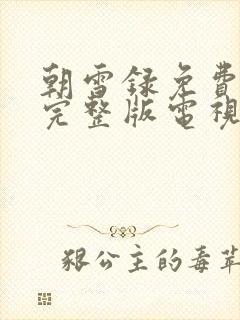 朝雪録免費
完整版電視
狠公主的毒莘